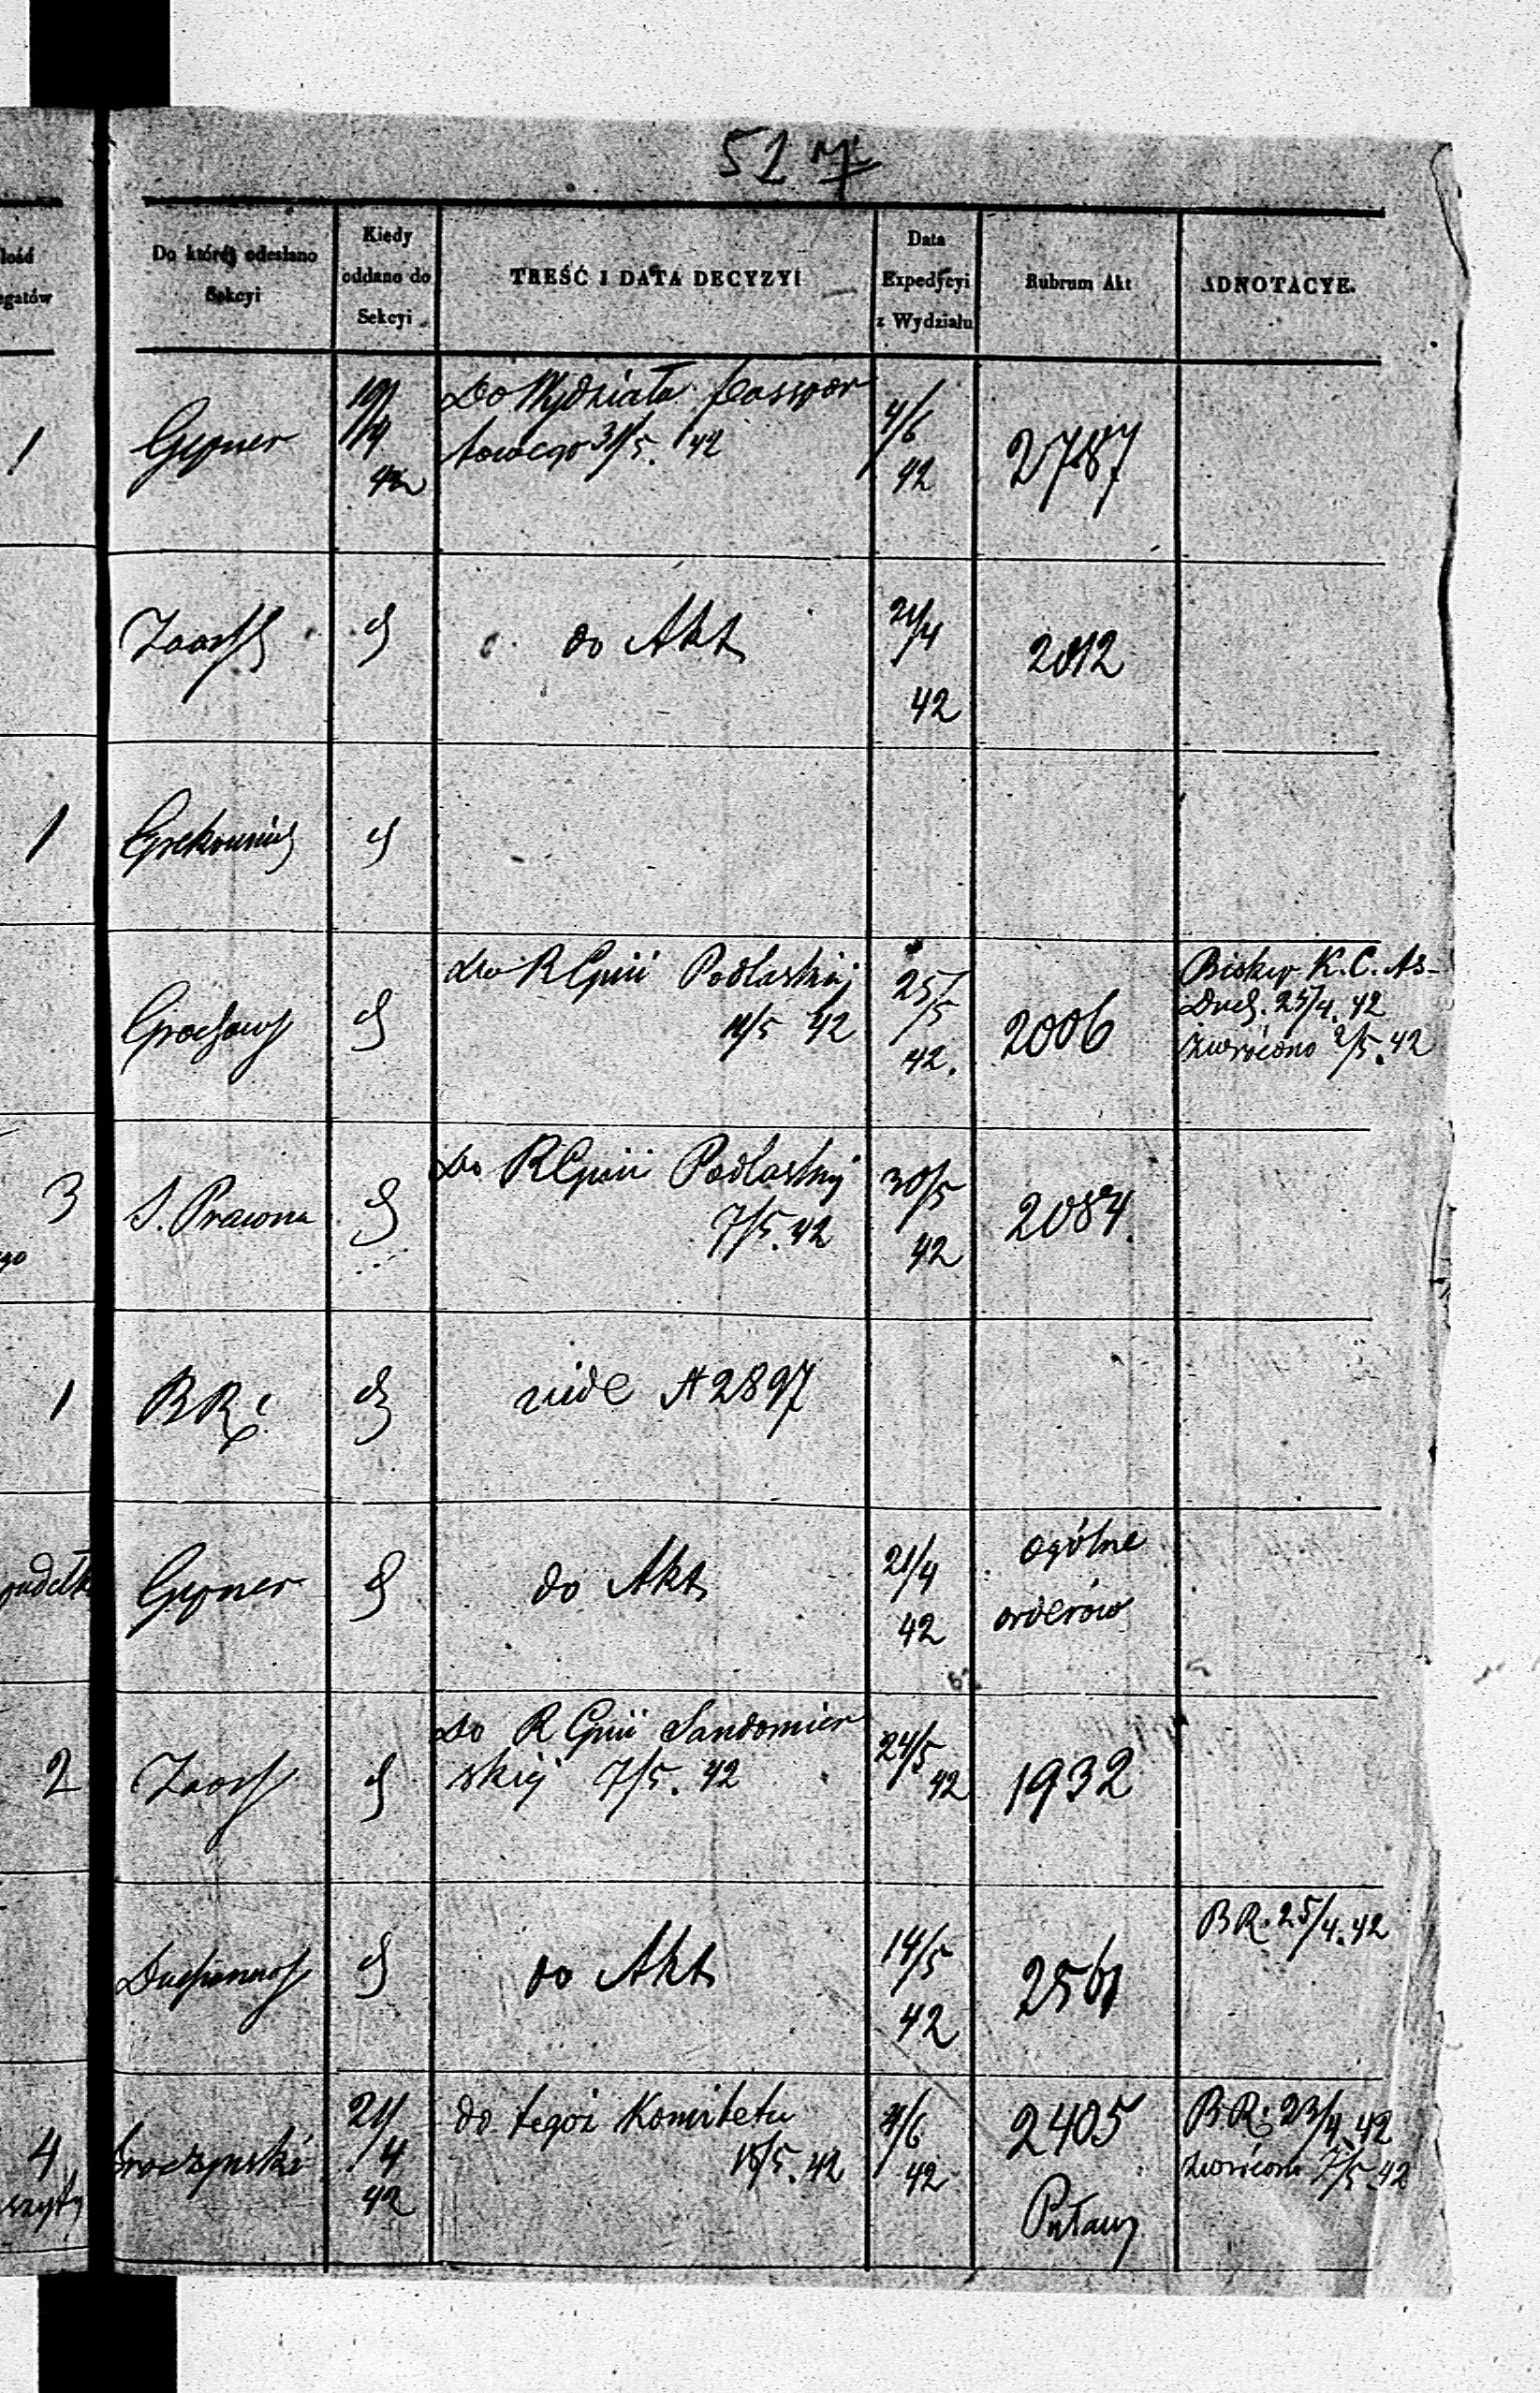 51
lość
egatów
Do której odesłano
Sekcyi
Kiedy
oddano do
Sekcyi
TREŚĆ I DATA DECYZYI
Data
Expedycyi
z Wydziału
Rubrum Akt
ADNOTACYE.
1
Gepner
19/4
42
Do Wydziału Paszpor
towego 31/5. 42
4/6
42
2787
do Akt
21/4
42
2012
1
do RGnii Podlaskiej
11/5 42
25/5
42.
2006
Biskup K. C. As-
Duch. 25/4. 42
zwrócono 2/5. 42
3
go
S. Prawna
do RGnii Podlaskiej
7/5. 42
30/5
42
2084.
1
BR.
vide A 2897
pudełk
Gepner
do Akt
21/4
42
ogólne
orderów
2
do R Gnii Sandomier
skiej 7/5. 42
24/5
42
1932
do Akt
14/5
42
2561
BR. 25/4. 42
4
szyty
21/4
42
do tegoż Komitetu
18/5. 42
4/6
42
2405
Puławy
B.R. 23/4. 42
zwrócono 7/5 42